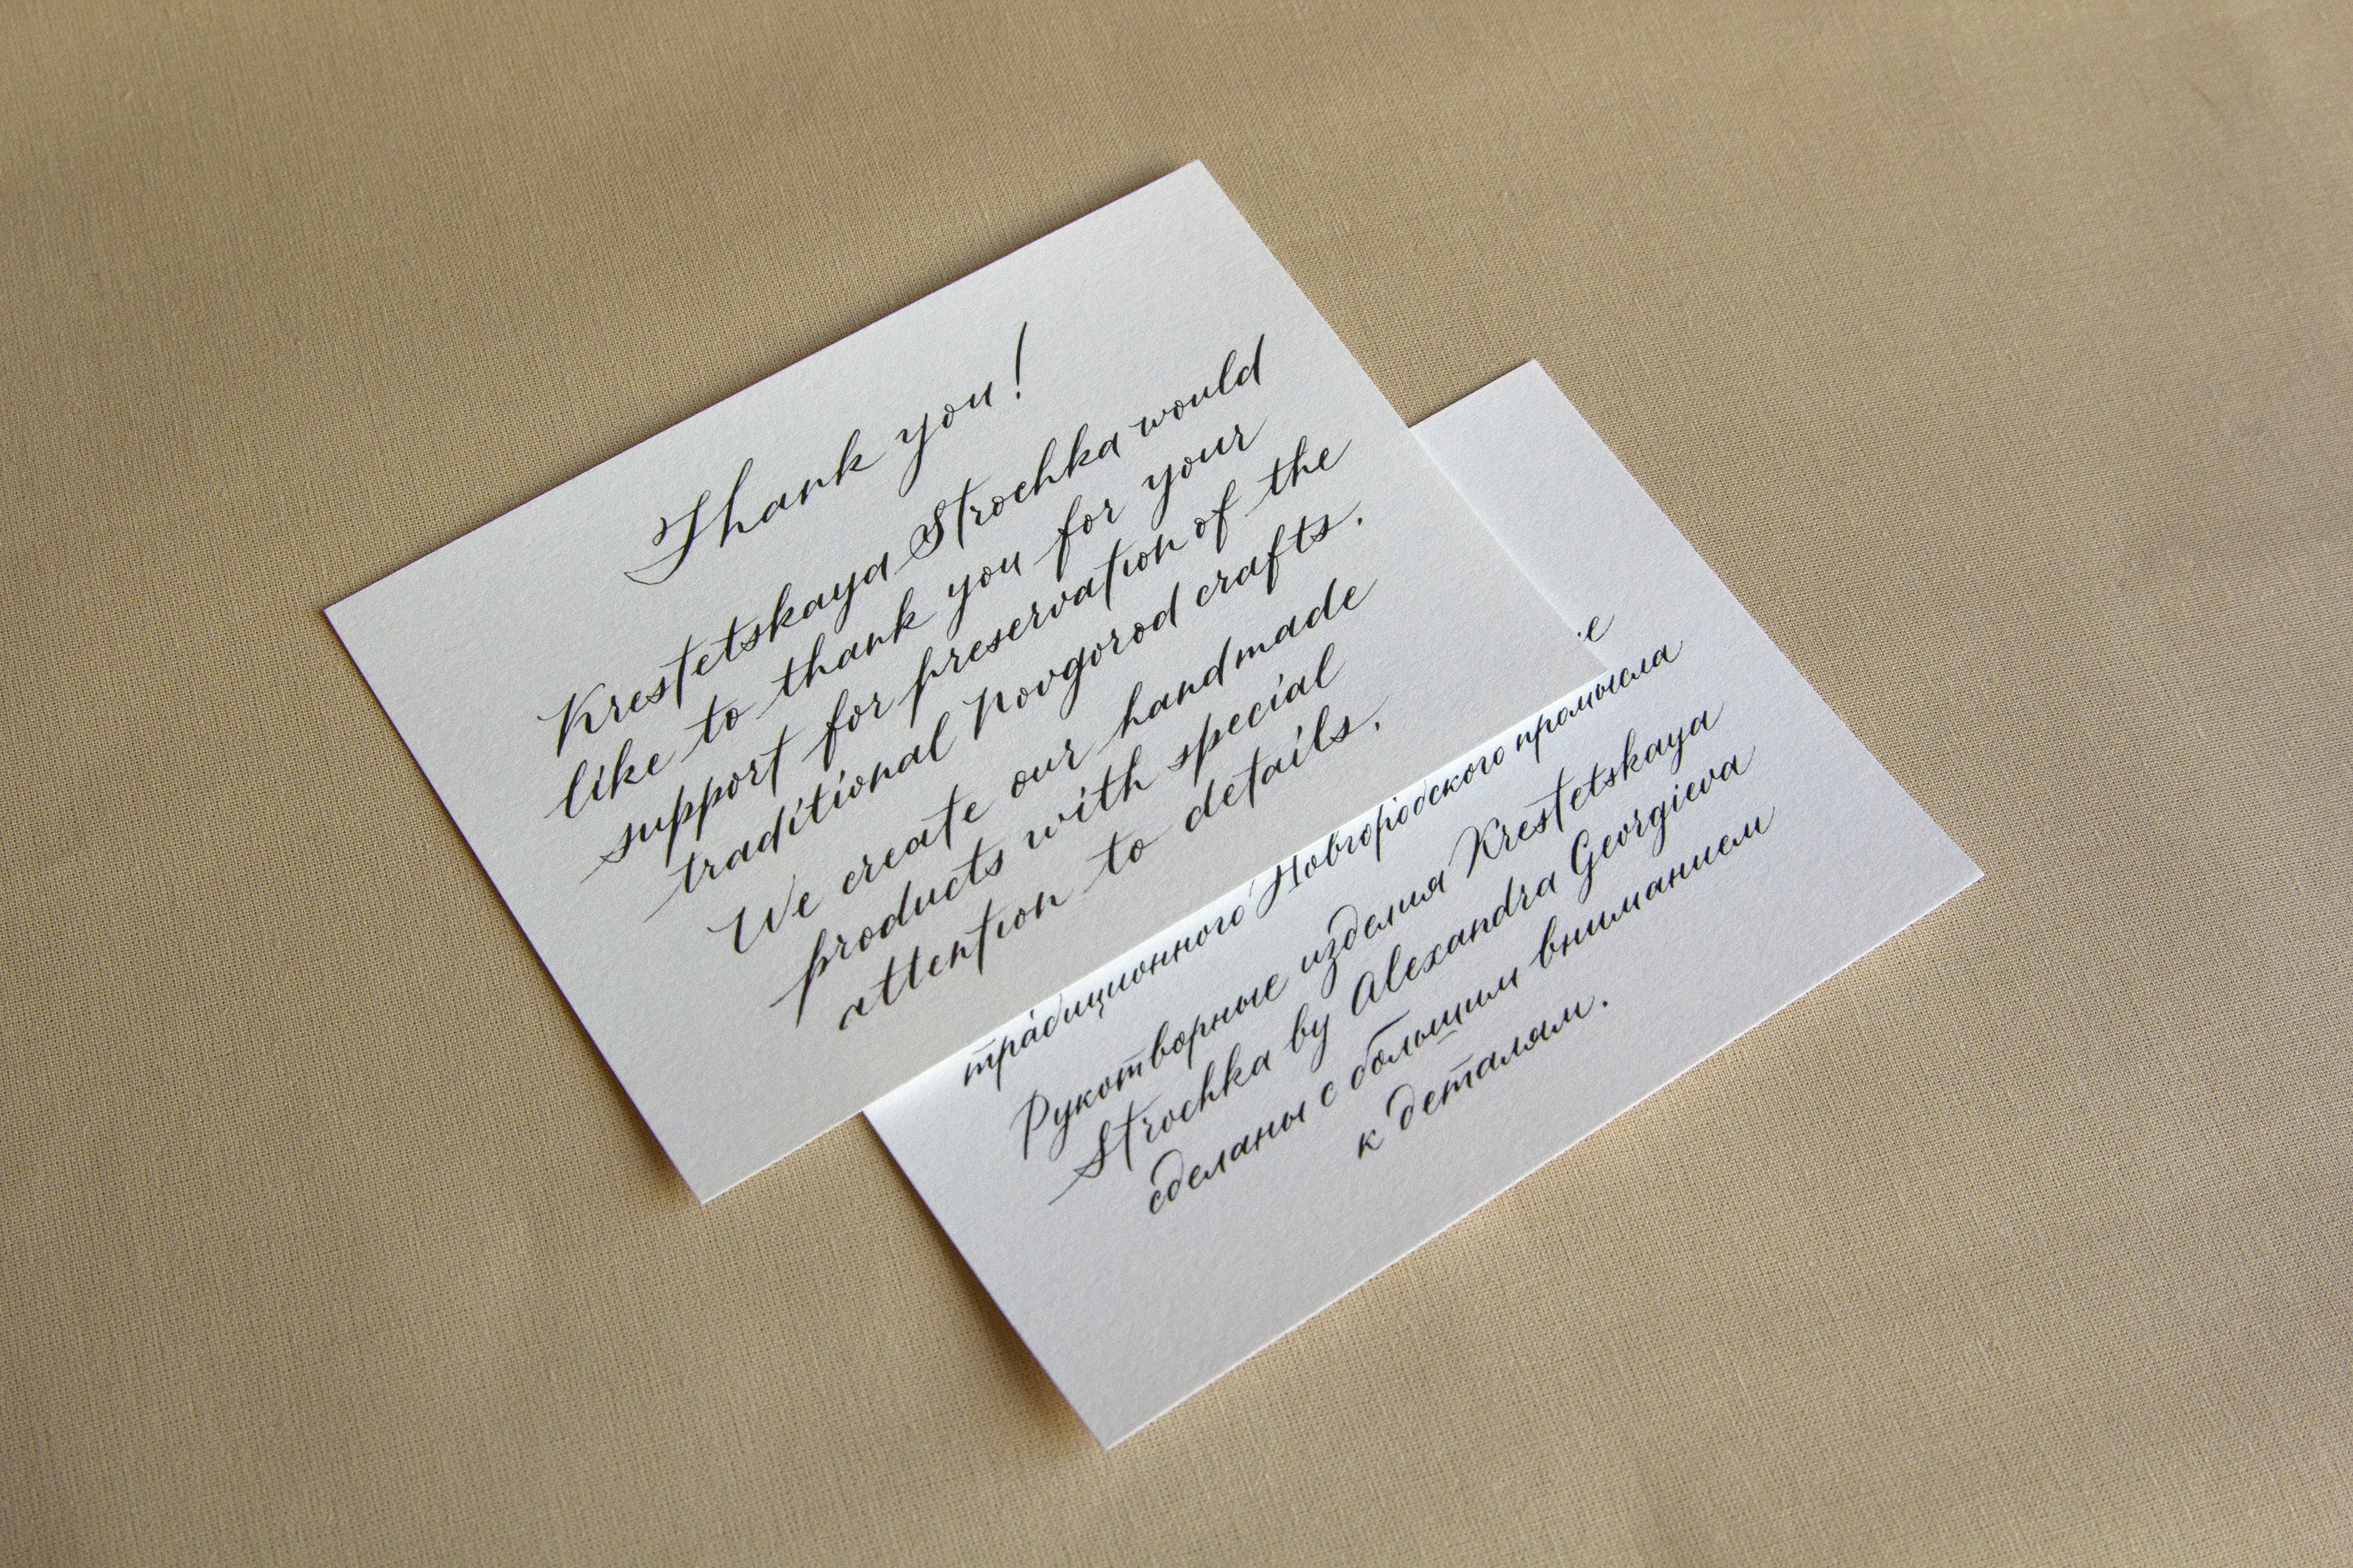 Thank you!
Krestetskaya Strochka would
like to thank you for your
support for preservation of the
traditional Novgorod crafts.
We create our handmade
products with special
attention to details.
традиционного Новгородского промысла
Рукотворные изделия Krestetskaya
Strochka by Alexandra Georgieva
сделаны с большим вниманием
к деталям.